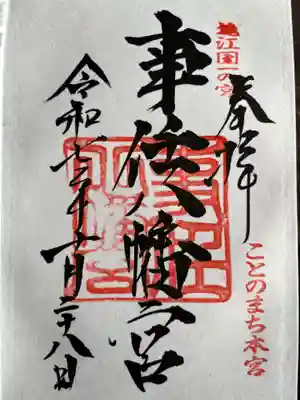 遠江国一の宮
奉拝
ことのまち本宮
事任八幡宮
令和七年十一月二十八日